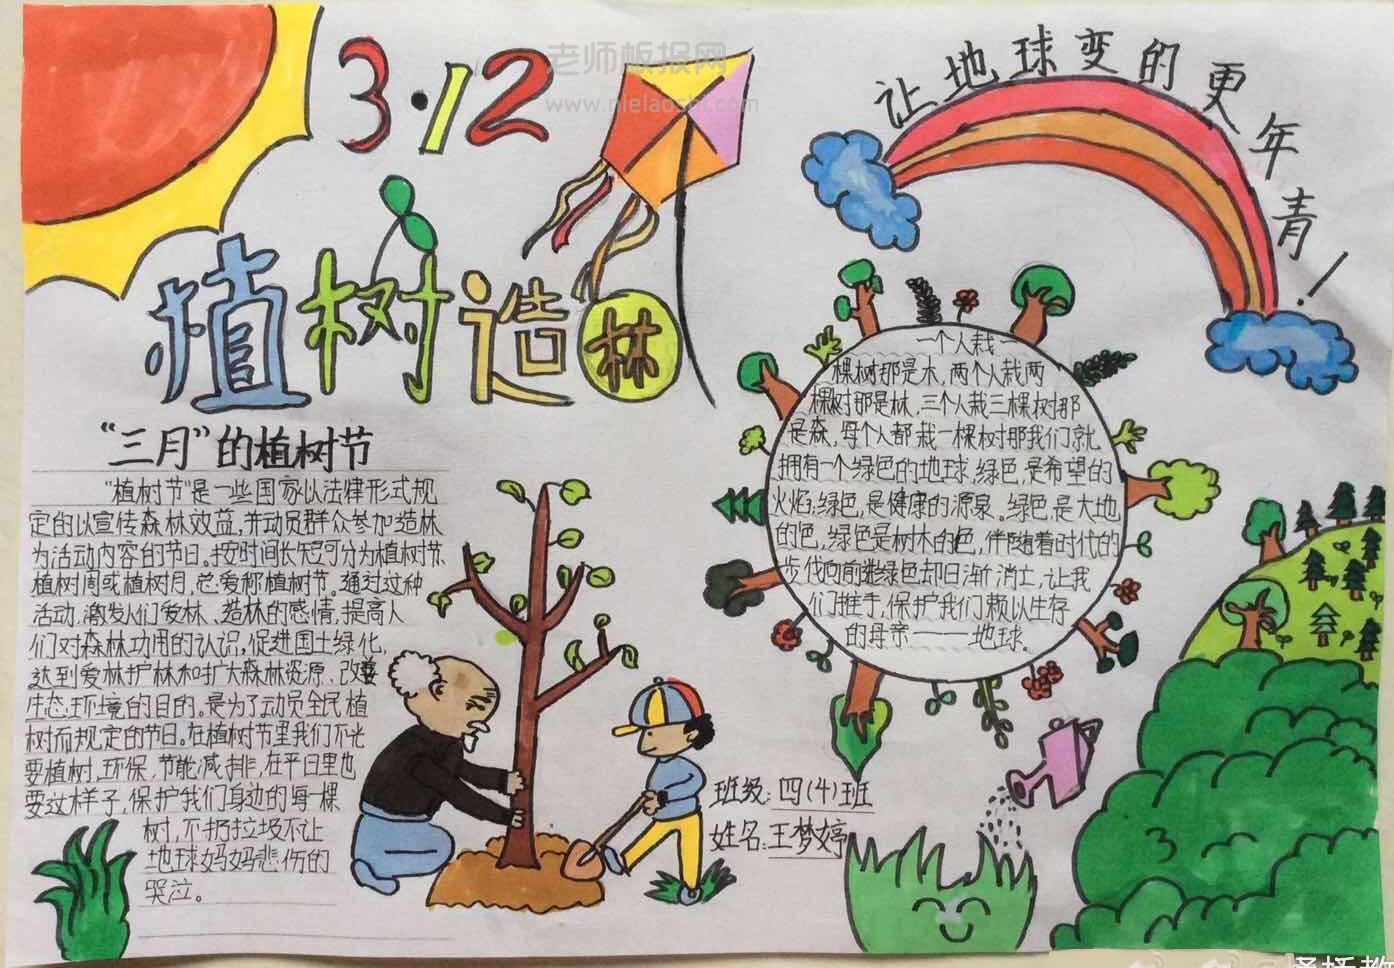 3·12
老师板报网
www.nielaoshi.com
让地球变的更年青！
植树造林
“三月”的植树节
“植树节”是一些国家以法律形式规
定的以宣传森林效益,并动员群众参加造林
为活动内容的节日。按时间长短可分为植树节、
植树周或植树月,总爱称植树节。通过这种
活动,激发人们爱林、造林的感情,提高人
们对森林功用的认识,促进国土绿化,
达到爱林护林和扩大森林资源、改善
生态环境的目的。是为了动员全民植
树而规定的节日。在植树节里我们不光
要植树,环保,节能减排,在平日里也
要这样子,保护我们身边的每一棵
树,不扔垃圾不让
地球妈妈悲伤的
哭泣。
一个人栽一
棵树那是木,两个人栽两
棵树那是林,三个人栽三棵树那
是森,每个人都栽一棵树那我们就
拥有一个绿色的地球,绿色,是希望的
火焰;绿色,是健康的源泉。绿色,是大地
的色,绿色是树木的色,伴随着时代的
步伐向前进绿色却日渐消亡,让我
们携手,保护我们赖以生存
的母亲——地球。
班级:四(4)班
姓名:王梦婷